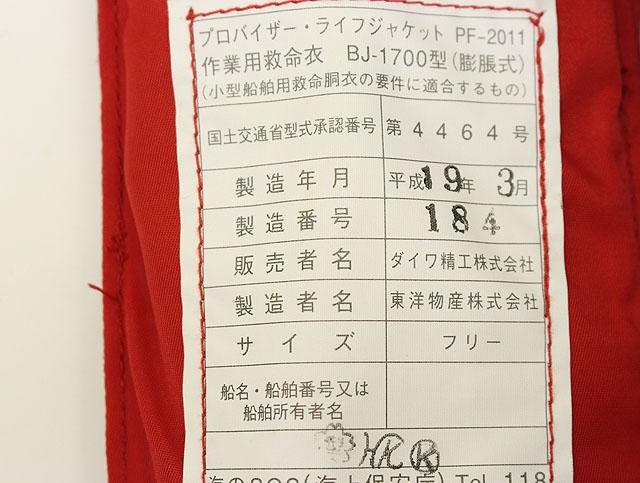 プロバイザー・ライフジャケット PF-2011
作業用救命衣 BJ-1700型(膨脹式)
(小型船舶用救命胴衣の要件に適合するもの)
国土交通省型式承認番号 第4464号
製造年月 平成19年 3月
製造番号 184
販売者名 ダイワ精工株式会社
製造者名 東洋物産株式会社
サイズ フリー
船名・船舶番号又は
船舶所有者名
HK K
海のSOS(海上保安庁) Tel 118